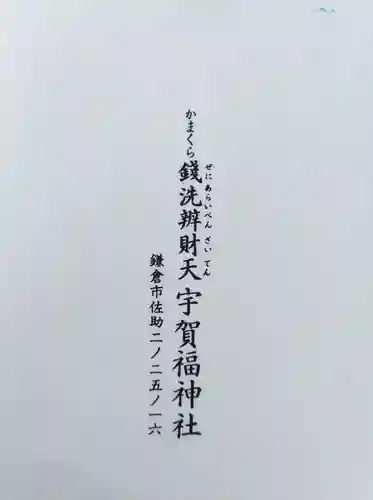 ぜにあらいべんざいてん
かまくら錢洗辨財天宇賀福神社
鎌倉市佐助二ノ二五ノ一六